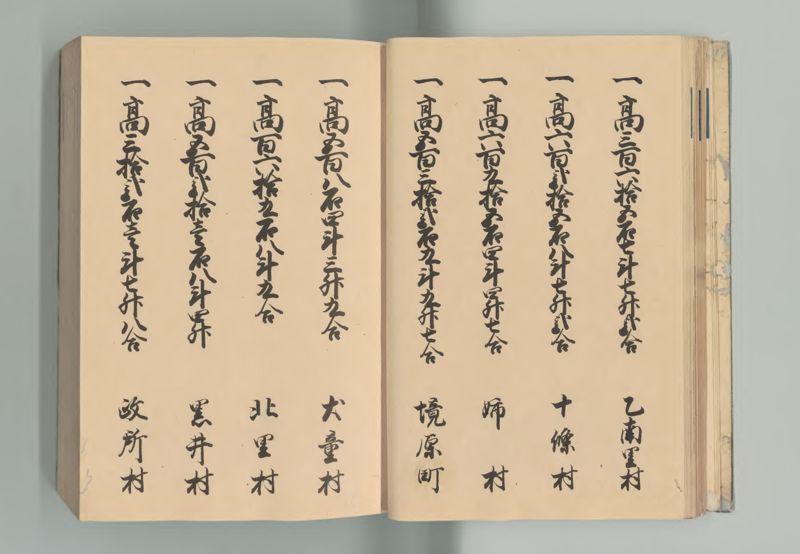 一高三百六拾五石七斗七升弐合 乙南里村
一高六百弐拾五石八斗七升弐合 十條村
一高六百九拾五石四斗四升七合 姉村
一高五百三拾弐石九斗九升七合 境原町
一高五百八石四斗三升九合 犬童村
一高百六拾五石八斗九合 北里村
一高五百弐拾壱石八斗四升 黒井村
一高三拾弐石壱斗七升八合 政所村